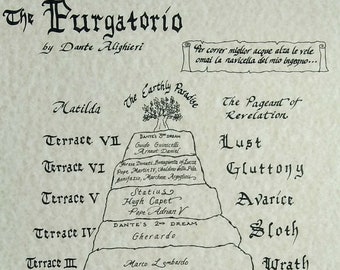 The Purgatorio
by Dante Alighieri
Per correr miglior acque alza le vele
omai la navicella del mio ingegno...
The Earthly Paradise
Matilda
The Pageant of
Revelation
Terrace VII
DANTE'S 3RD DREAM
Guido Guinicelli
Arnaut Daniel
Lust
Terrace VI
Forese Donati, Bonagiunta of Lucca
Pope Martin IV,
Bonifazio, Marchese
Gluttony
Terrace V
Statius
Hugh Capet
Pope Adrian V
Avarice
Terrace IV
DANTE'S 2ND DREAM
Gherardo
Sloth
Terrace III
Marco Lombardo
Wrath